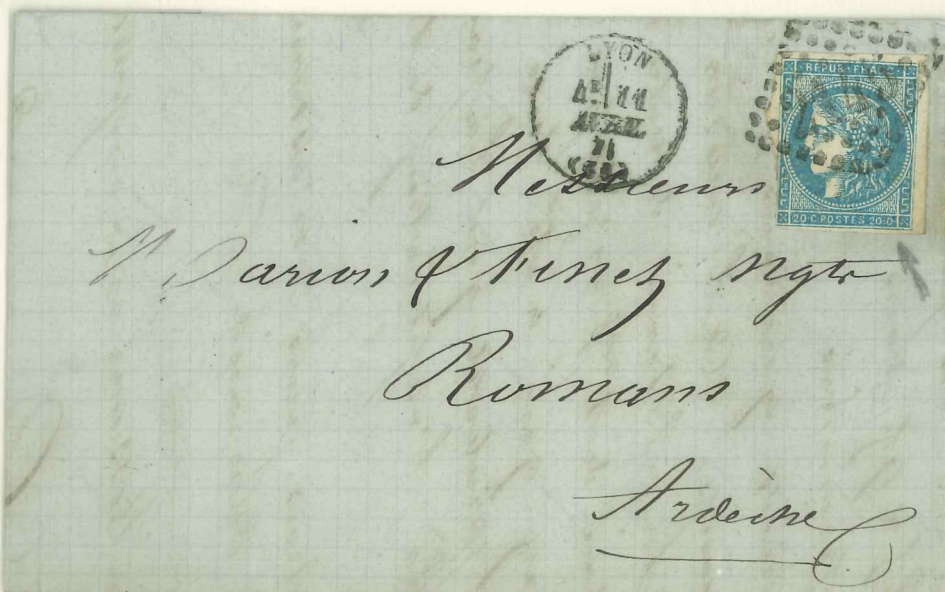 LYON
11
AVRIL
71
REPUB FRANC
20 C POSTES 20 C
Messieurs
& Finet Ngts
Romans
Ardèche